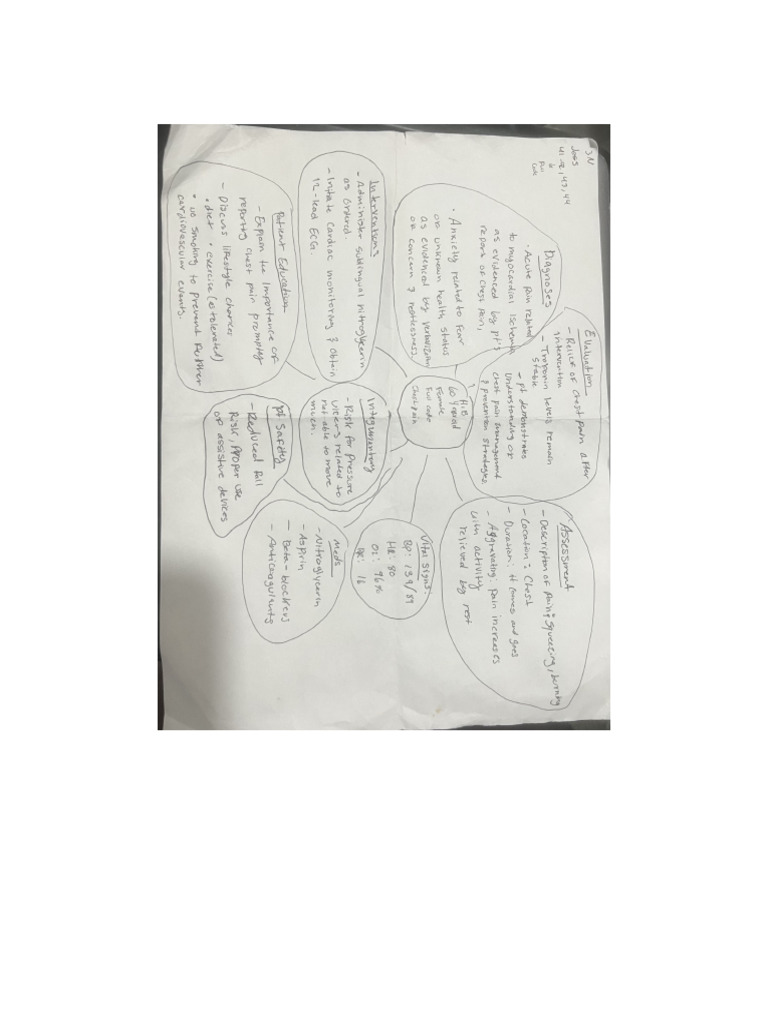 SN
Evaluation
- Relief of chest pain after
intervention
- Troponin levels remain
stable
- pt demonstrates
understanding of
chest pain management
& prevention strategies.
Assessment
- Description of pain: squeezing, burning
- Location: Chest
- Duration: it comes and goes
- Aggravating: Pain increases
with activity
relieved by rest
Diagnoses
• Acute Pain related
to myocardial Ischemia
as evidenced by pt's
report of chest pain,
• Anxiety related to fear
or unknown health status
as evidenced by
or concern & restlessness.
H.B
60 y/o
Female
Full code
Chest pain
Vital Signs:
BP: 139/89
HR: 80
O2: 96%
RR: 16
Interventions
- Administer sublingual nitroglycerin
as ordered.
- Initiate cardiac monitoring & obtain
12-lead ECG.
Integumentary
- Risk for pressure
ulcers related to
not able to move
much.
Meds
- Nitroglycerin
- Aspirin
- Beta-blockers
- Anticoagulants
Patient Education
- Explain the importance of
reporting chest pain promptly
- Discuss lifestyle changes
• diet • exercise (as tolerated)
• no smoking to prevent further
cardiovascular events.
pt Safety
- Reduced fall
Risk, proper use
of assistive devices